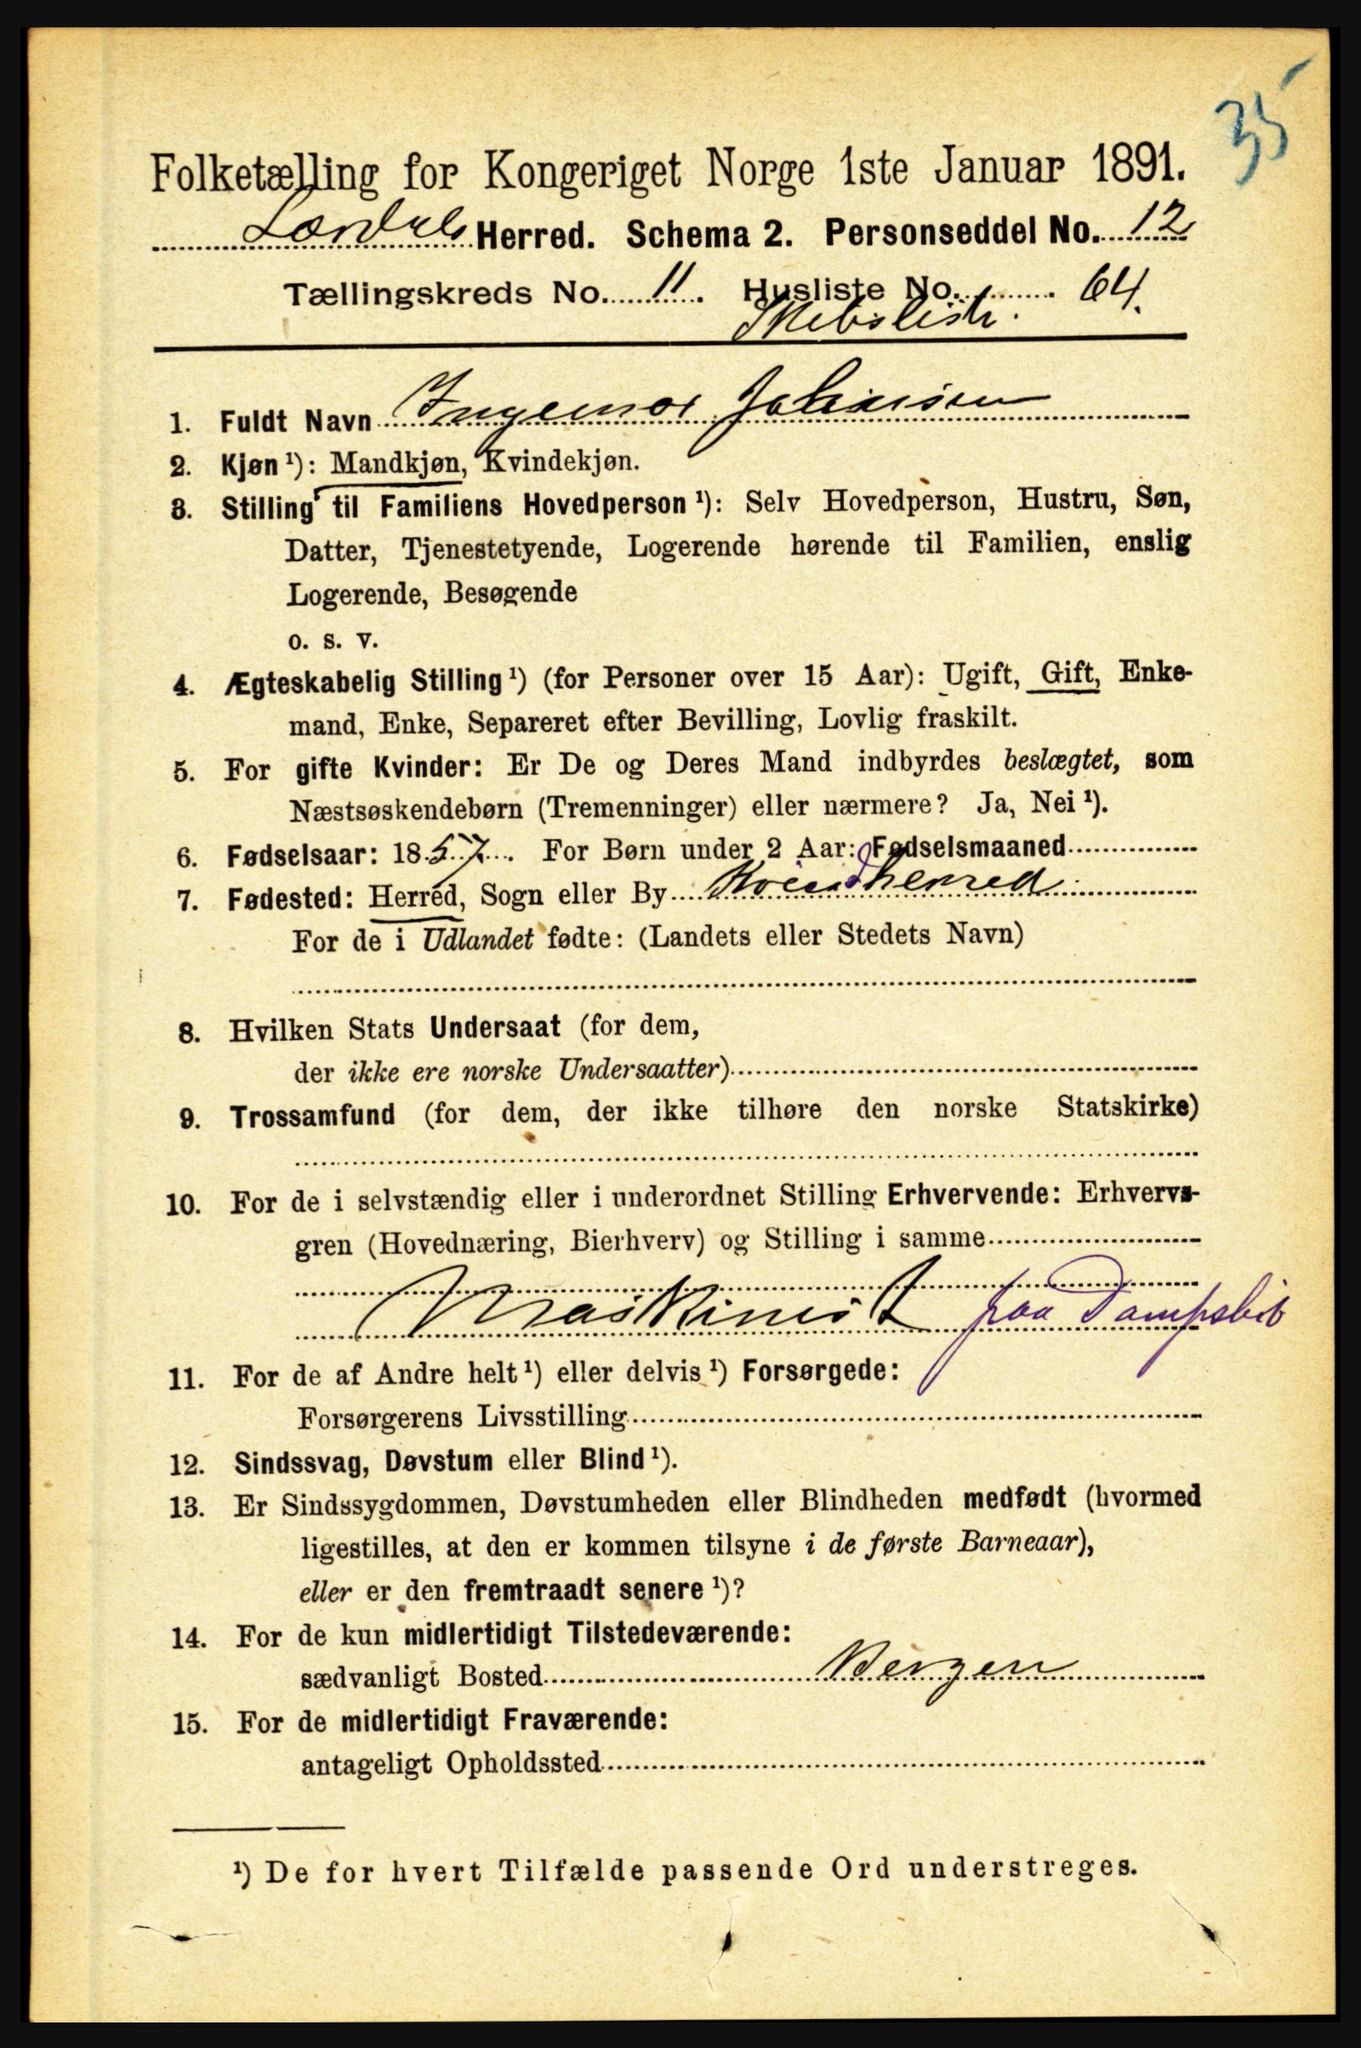 35
Folketælling for Kongeriget Norge 1ste Januar 1891.
Lærdals Herred. Schema 2. Personseddel No. 12
Tællingskreds No. 11. Husliste No. 64.
Skibsliste.
1. Fuldt Navn Ingemar Johnsen
2. Kjøn ¹): Mandkjøn, Kvindekjøn.
3. Stilling til Familiens Hovedperson ¹): Selv Hovedperson, Hustru, Søn,
Datter, Tjenestetyende, Logerende hørende til Familien, enslig
Logerende, Besøgende
o. s. v.
4. Ægteskabelig Stilling ¹) (for Personer over 15 Aar): Ugift, Gift, Enke-
mand, Enke, Separeret efter Bevilling, Lovlig fraskilt.
5. For gifte Kvinder: Er De og Deres Mand indbyrdes beslægtet, som
Næstsøskendebørn (Tremenninger) eller nærmere? Ja, Nei ¹).
6. Fødselsaar: 1857. For Børn under 2 Aar: Fødselsmaaned
7. Fødested: Herred, Sogn eller By Kvindherred
For de i Udlandet fødte: (Landets eller Stedets Navn)
8. Hvilken Stats Undersaat (for dem,
der ikke ere norske Undersaatter)
9. Trossamfund (for dem, der ikke tilhøre den norske Statskirke)
10. For de i selvstændig eller i underordnet Stilling Erhvervende: Erhvervs-
gren (Hovednæring, Bierhverv) og Stilling i samme
Maskinist paa Dampskib
11. For de af Andre helt ¹) eller delvis ¹) Forsørgede:
Forsørgerens Livsstilling
12. Sindssvag, Døvstum eller Blind ¹).
13. Er Sindssygdommen, Døvstumheden eller Blindheden medfødt (hvormed
ligestilles, at den er kommen tilsyne i de første Barneaar),
eller er den fremtraadt senere ¹)?
14. For de kun midlertidigt Tilstedeværende:
sædvanligt Bosted Bergen
15. For de midlertidigt Fraværende:
antageligt Opholdssted
¹) De for hvert Tilfælde passende Ord understreges.